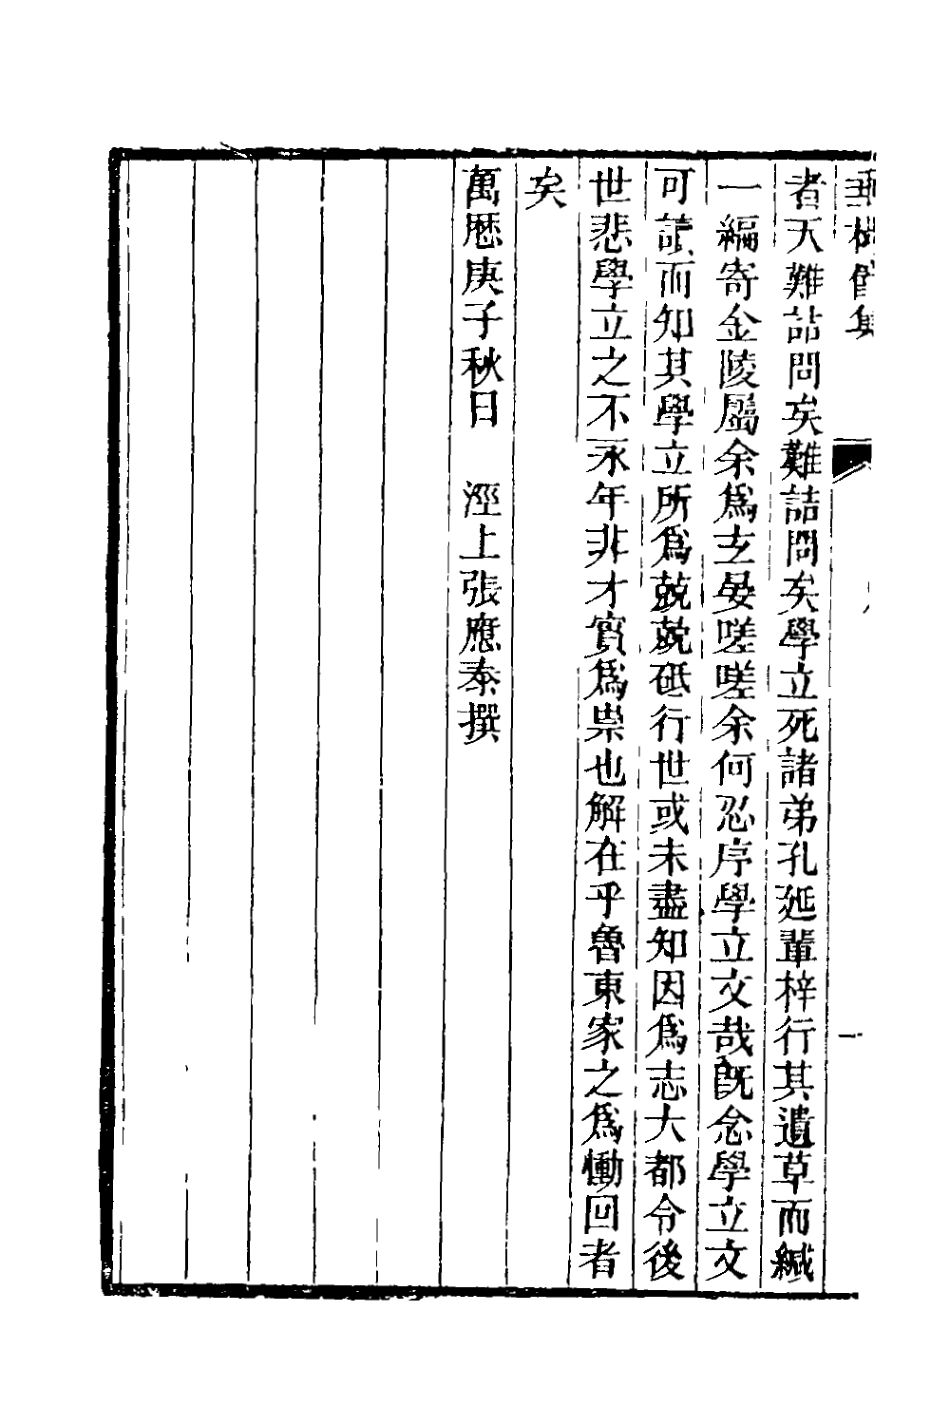 者天難詰問矣難詰問矣學立死諸弟孔延輩梓行其遺草而緘
一編寄金陵屬余爲玄晏嗟嗟余何忍序學立文哉旣念學立文
可讀而知其學立所爲兢兢砥行世或未盡知因爲志大都令後
世悲學立之不永年非才實爲祟也解在乎魯東家之爲慟回者
矣
萬厯庚子秋日 涇上張應泰撰